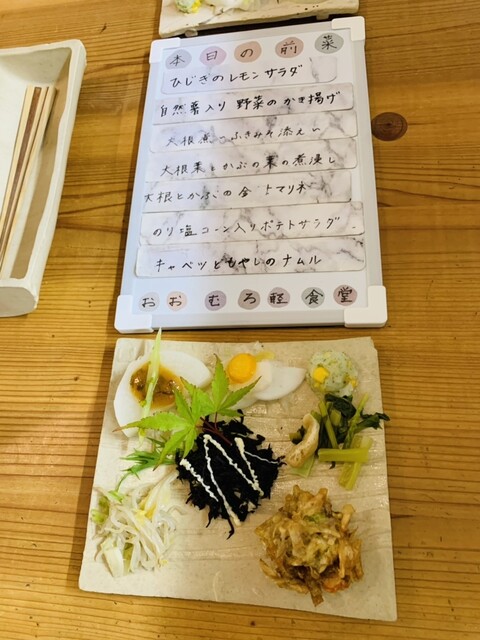 本日の前菜
ひじきのレモンサラダ
自然薯入り 野菜のかき揚げ
大根煮 ふきみそ添え
大根葉とかぶの葉の煮浸し
大根とかぶの
のり塩コーン入りポテトサラダ
キャベツともやしのナムル
おおむろ軽食堂